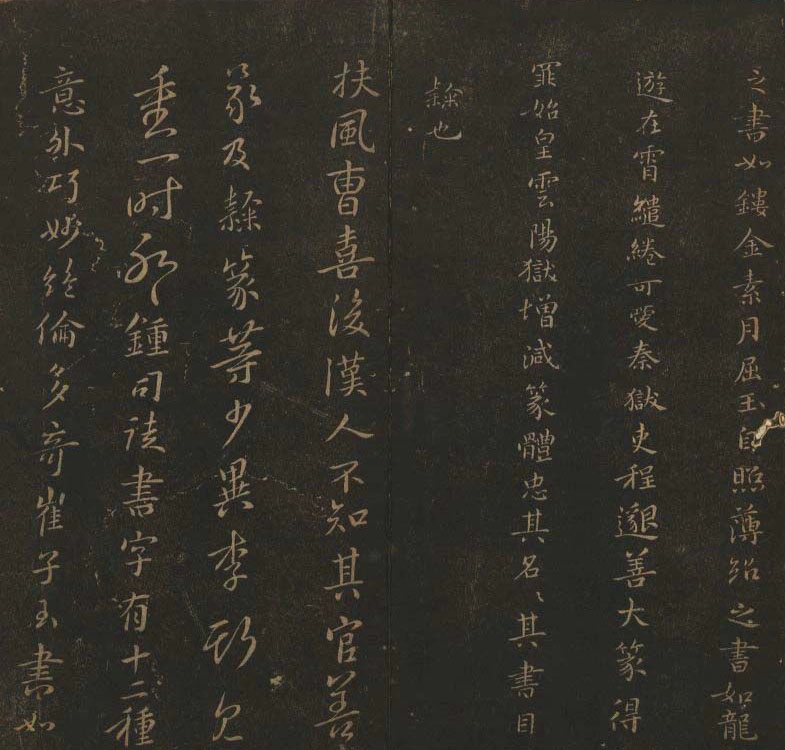 之書如鏤金素月屈玉自照薄紹之書如龍
遊在霄繾綣可愛秦獄吏程邈善大篆得
罪始皇雲陽獄增減篆體忠其名〻其書曰
隸也
扶風曹喜後漢人不知其官善
篆及隸篆等少異李斯見
重一時耶鍾司徒書字有十二種
意外巧妙絶倫多奇崔子玉書如